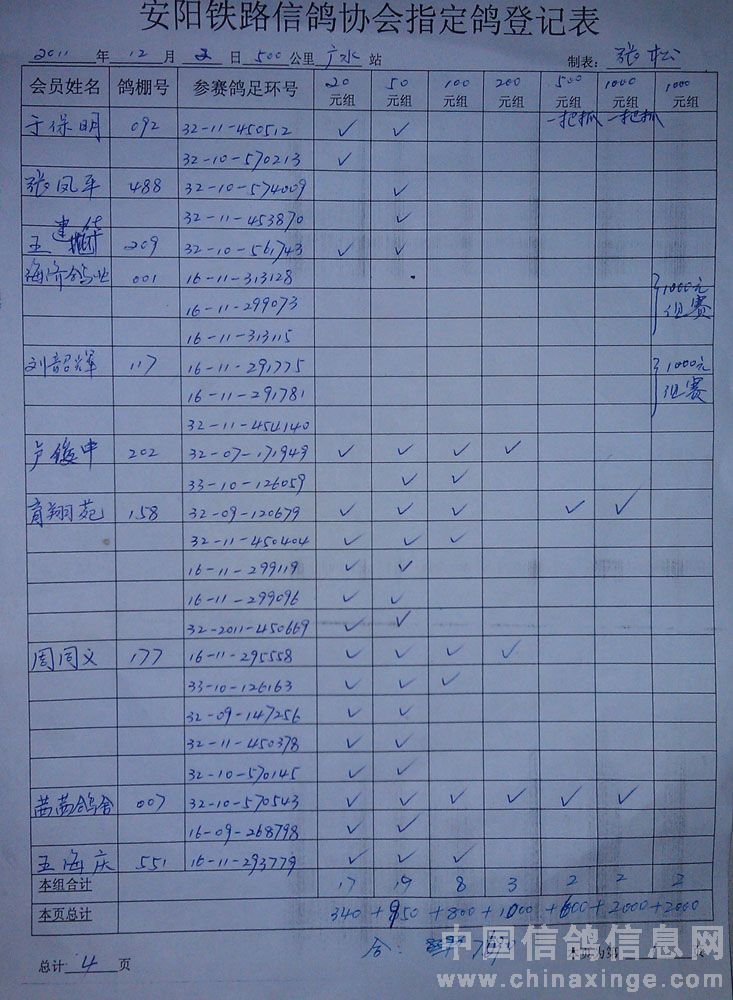 安阳铁路信鸽协会指定鸽登记表
2011 年 12 月 2 日 500 公里 广水 站 制表: 张松
会员姓名 鸽棚号 参赛鸽足环号 20元组 50元组 100元组 200元组 500元组 1000元组 1000元组
一把抓 一把抓
于保明 092 32-11-450512 ✓ ✓
32-10-570213 ✓
张凤平 488 32-10-574009 ✓
32-11-453870 ✓
王建华 209 32-10-561743 ✓ ✓
海济鸽业 001 16-11-313128
16-11-299073 1000元组赛
16-11-313115
刘韶辉 117 16-11-291775
16-11-291781 1000元组赛
32-11-454140
卢俊中 202 32-07-171949 ✓ ✓ ✓ ✓
33-10-126059 ✓ ✓
育翔苑 158 32-09-120679 ✓ ✓ ✓ ✓ ✓
32-11-450404 ✓ ✓ ✓
16-11-299119 ✓ ✓
16-11-299096 ✓ ✓
32-2011-450669 ✓ ✓
周同义 177 16-11-295558 ✓ ✓ ✓ ✓
33-10-126163 ✓ ✓ ✓
32-09-147256 ✓ ✓
32-11-450378 ✓ ✓
32-10-570145 ✓ ✓
茜茜鸽舍 007 32-10-570543 ✓ ✓ ✓ ✓ ✓ ✓
16-09-268798 ✓ ✓
王海庆 551 16-11-293779 ✓ ✓ ✓
本组合计 17 19 8 3 2 2 2
本页总计 340 + 950 + 800 + + 2000 + 2000
合:
总计 4 页
中国信鸽信息网
www.chinaxinge.com